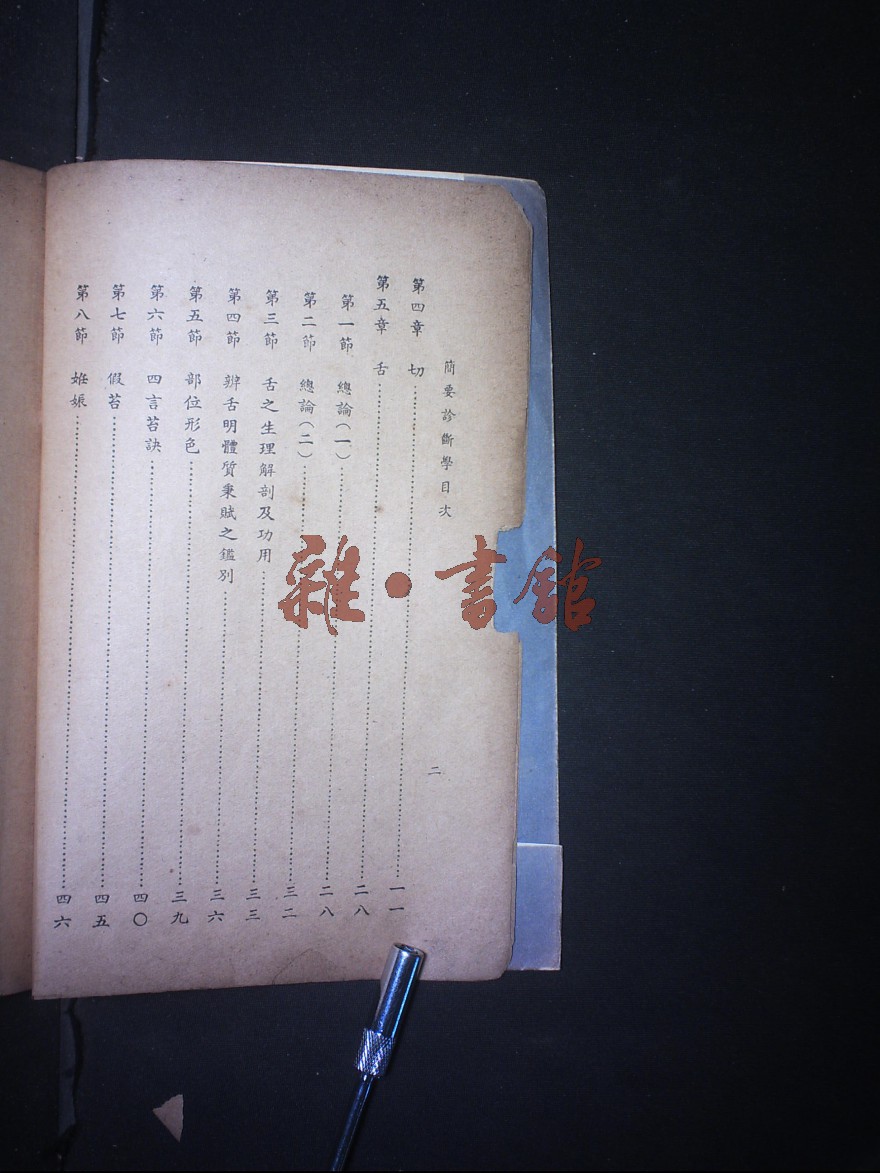 簡要診斷學目次
二
第四章 切……一一
第五章 舌……二八
第一節 總論(一)……二八
第二節 總論(二)……三二
第三節 舌之生理解剖及功用……三三
第四節 辨舌明體質秉賦之鑑別……三六
第五節 部位形色……三九
第六節 四言苔訣……四〇
第七節 假苔……四五
第八節 妊娠……四六
雜·書館